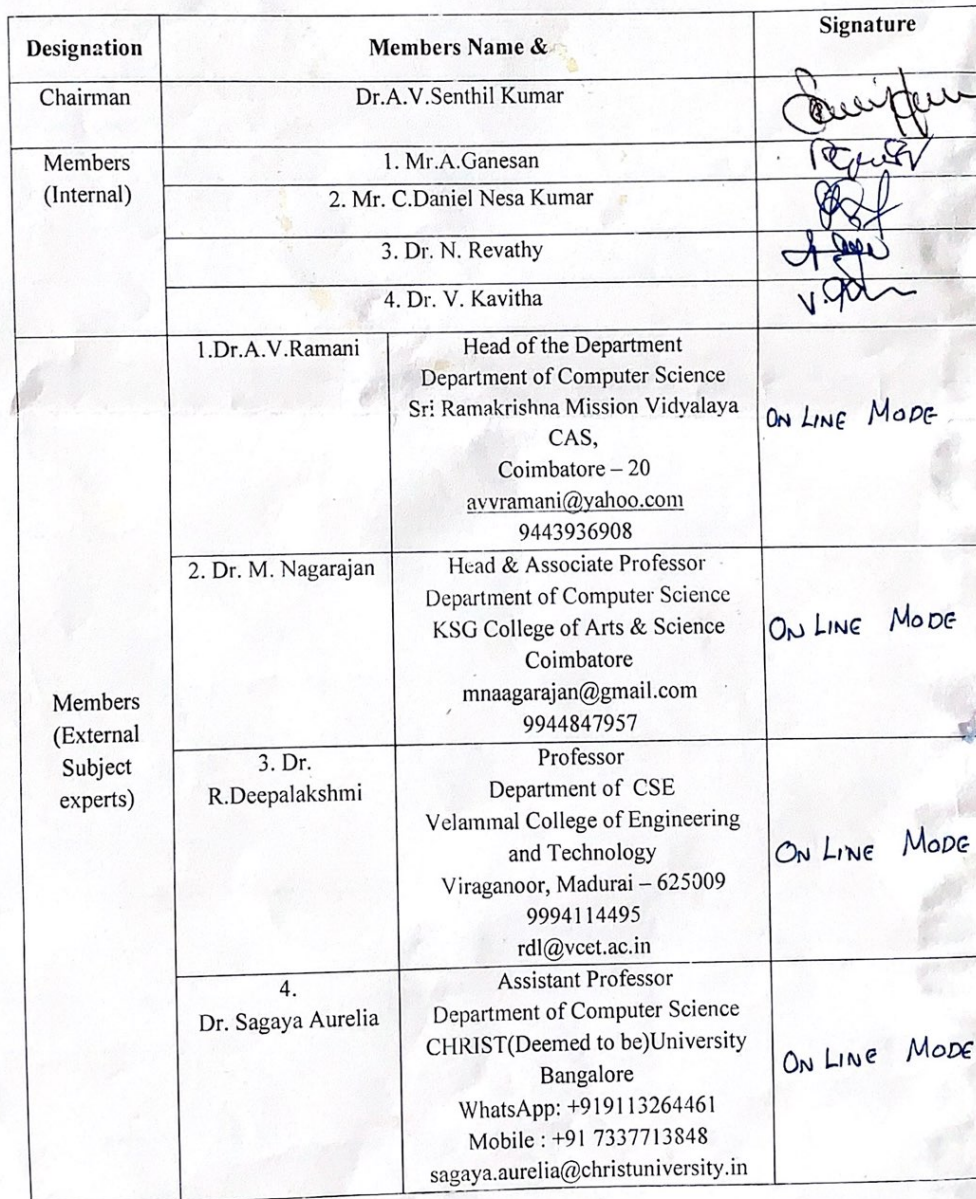 Designation Members Name & Signature
Chairman Dr.A.V.Senthil Kumar
Members
(Internal)
1. Mr.A.Ganesan
2. Mr. C.Daniel Nesa Kumar
3. Dr. N. Revathy
4. Dr. V. Kavitha
Members
(External
Subject
experts)
1.Dr.A.V.Ramani
Head of the Department
Department of Computer Science
Sri Ramakrishna Mission Vidyalaya
CAS,
Coimbatore – 20
avvramani@yahoo.com
9443936908
ON LINE MODE
2. Dr. M. Nagarajan
Head & Associate Professor
Department of Computer Science
KSG College of Arts & Science
Coimbatore
mnaagarajan@gmail.com
9944847957
ON LINE MODE
3. Dr.
R.Deepalakshmi
Professor
Department of CSE
Velammal College of Engineering
and Technology
Viraganoor, Madurai – 625009
9994114495
rdl@vcet.ac.in
ON LINE MODE
4.
Dr. Sagaya Aurelia
Assistant Professor
Department of Computer Science
CHRIST(Deemed to be)University
Bangalore
WhatsApp: +919113264461
Mobile : +91 7337713848
sagaya.aurelia@christuniversity.in
ON LINE MODE